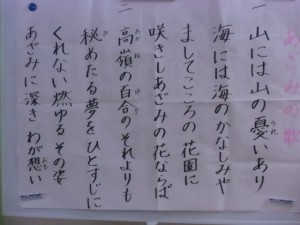 あざみの歌
一 山には山の憂いあり
うれ
海には海のかなしみや
ましてこころの花園に
咲きしあざみの花ならば
二 高嶺の百合のそれよりも
たかね ゆり
秘めたる夢をひとすじに
くれない燃ゆるその姿
あざみに深きわが想い
おも